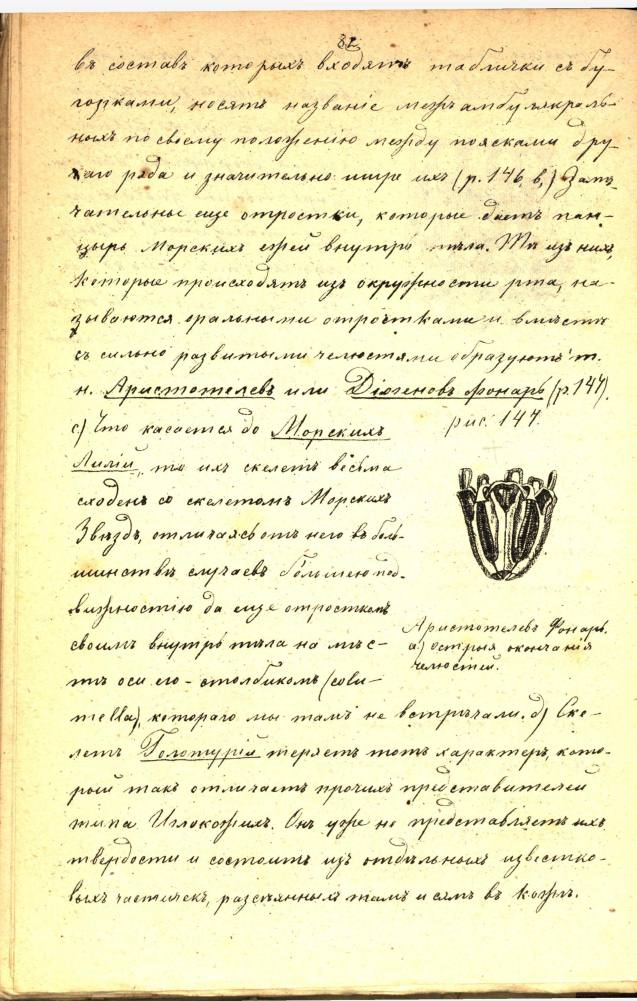 82
въ составъ которыхъ входятъ таблички съ бу-
горками, носятъ названіе межъамбулякраль-
ныхъ по своему положенію между поясками дру-
гаго ряда и значительно шире ихъ (р. 146, в,) Замѣ-
чательные еще отростки, которые даетъ пан-
цырь Морскихъ ежей внутрь тѣла. Тѣ изъ нихъ,
которые происходятъ изъ окружности рта, на-
зываются оральными отростками и вмѣстѣ
съ сильно развитыми челюстями образуютъ т.
н. Аристотелевъ или Діогеновъ фонарь (р. 147).
с) Что касается до Морскихъ
Лилій, то ихъ скелетъ весьма
сходенъ со скелетомъ Морскихъ
Звѣздъ, отличаясь отъ него въ боль-
шинствѣ случаевъ большею под-
вижностію да еще отросткомъ
своимъ внутрь тѣла на мѣс-
тѣ оси его - столбикомъ (colu-
mella), котораго мы тамъ не встрѣчали. d) Ске-
летъ Голотурій теряетъ тотъ характеръ, кото-
рый такъ отличаетъ прочихъ представителей
типа Иглокожихъ. Онъ уже не представляетъ ихъ
твердости и состоитъ изъ отдѣльныхъ известко-
выхъ частичекъ, разсѣянныхъ тамъ и сямъ въ кожѣ.
рис. 147.
Аристотелевъ Фонарь.
а.) острыя окончанія
челюстей.